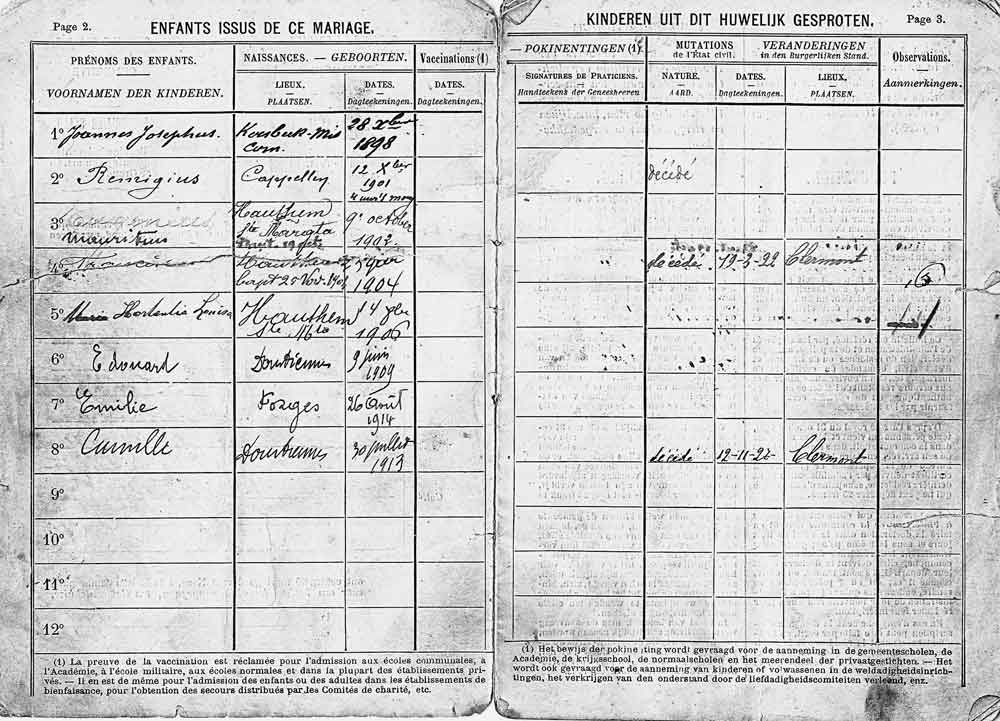 Page 2.
ENFANTS ISSUS DE CE MARIAGE.
PRÉNOMS DES ENFANTS.
VOORNAMEN DER KINDEREN.
NAISSANCES. — GEBOORTEN.
LIEUX.
PLAATSEN.
DATES.
Dagteekeningen.
Vaccinations (1)
DATES.
Dagteekeningen.
1º Joannes Josephus.
28 Xber
1898
2º Remigius
Cappellen
12 Xber
1901
3º
Mauritius
Hauthem
Ste Margta
9 October
1903
4º
1904
5º Hortentia Louisa
Hauthem
Ste Mta
14
1906
6º Edouard
9 juin
1909
7º Emilie
Forges
26 Août
1914
8º Camille
30 juillet
1913
9º
10º
11º
12º
(1) La preuve de la vaccination est réclamée pour l'admission aux écoles communales, à
l'Académie, à l'école militaire, aux écoles normales et dans la plupart des établissements pri-
vés. — Il en est de même pour l'admission des enfants ou des adultes dans les établissements de
bienfaisance, pour l'obtention des secours distribués par les Comités de charité, etc.
KINDEREN UIT DIT HUWELIJK GESPROTEN.
Page 3.
— POKINENTINGEN (1).
SIGNATURES DE PRATICIENS.
Handteekens der Geneesheeren
MUTATIONS
de l'État civil.
VERANDERINGEN
in den Burgerlijken Stand.
NATURE.
AARD.
DATES.
Dagteekeningen.
LIEUX.
PLAATSEN.
Observations.
Aanmerkingen.
décédé
décédé 19-3-22 Clermont
décédé 12-11-22 Clermont
(1) Het bewijs der pokinenting wordt gevraagd voor de aanneming in de gemeentescholen, de
Academie, de krijgsschool, de normaalscholen en het meerendeel der privaatgestichten. — Het
wordt ook gevraagd voor de aanneming van kinderen of volwassenen in de weldadigheidsinrich-
tingen, het verkrijgen van den onderstand door de liefdadigheidscomiteiten verleend, enz.